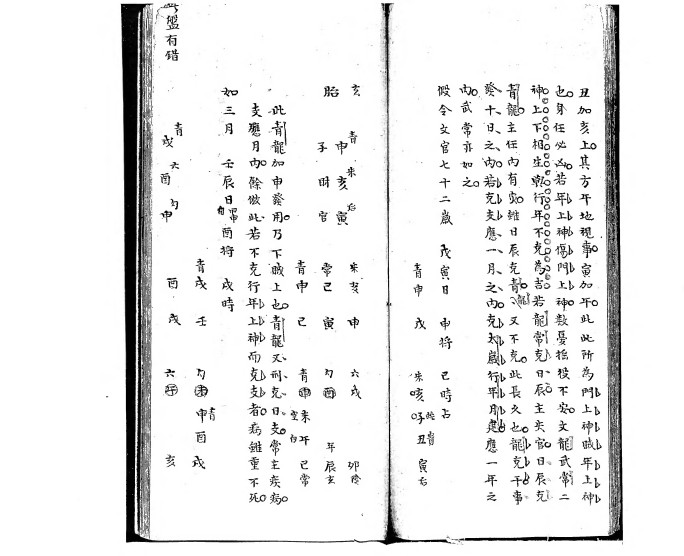 丑加亥上其方午地視事寅加午此此所為門上神賊年上神
也身任必凶若年上神傷門上神數憂拾役不安文龍武常二
神上下相生乘行年不克為吉若龍常克日辰主失官日辰克
青龍主任內有災雖日辰克青龍又不克此長久也龍克干事
發十日之內若克支應一月之內克太歲行年月建應一年之
內武常亦如之
假令文官七十二歲 戊寅日 申將 巳時占
青申 戌 朱亥 子 丑 寅后
亥 青 朱 后
申 亥 寅
胎 子 財 官
朱亥 申 六戌 卯陰
常巳 寅 勾酉 辰玄
青申 巳 青申 未 午 巳常
空 白
此青龍加申發用乃下賊上也青龍又刑克日支常主疾病
支應月內餘倣此若不克行年上神而克支者病雖重不死
如三月 壬辰日 酉將 戌時
青 六 勾
戌 酉 申
青戌 壬 勾未 申 酉 戌
酉 戌 六子 亥
盤有錯